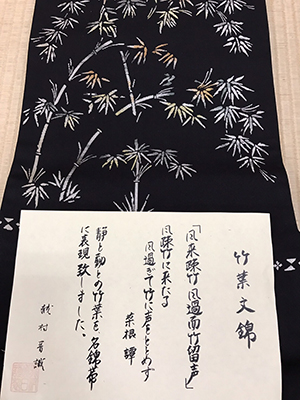 竹葉文錦
「風来疎竹 風過而竹留声」
風疎竹に来たる
風過ぎて竹に声をととめす
菜根譚
静と動との竹葉を、名錦帯
に表現致しました。
龍村晋識